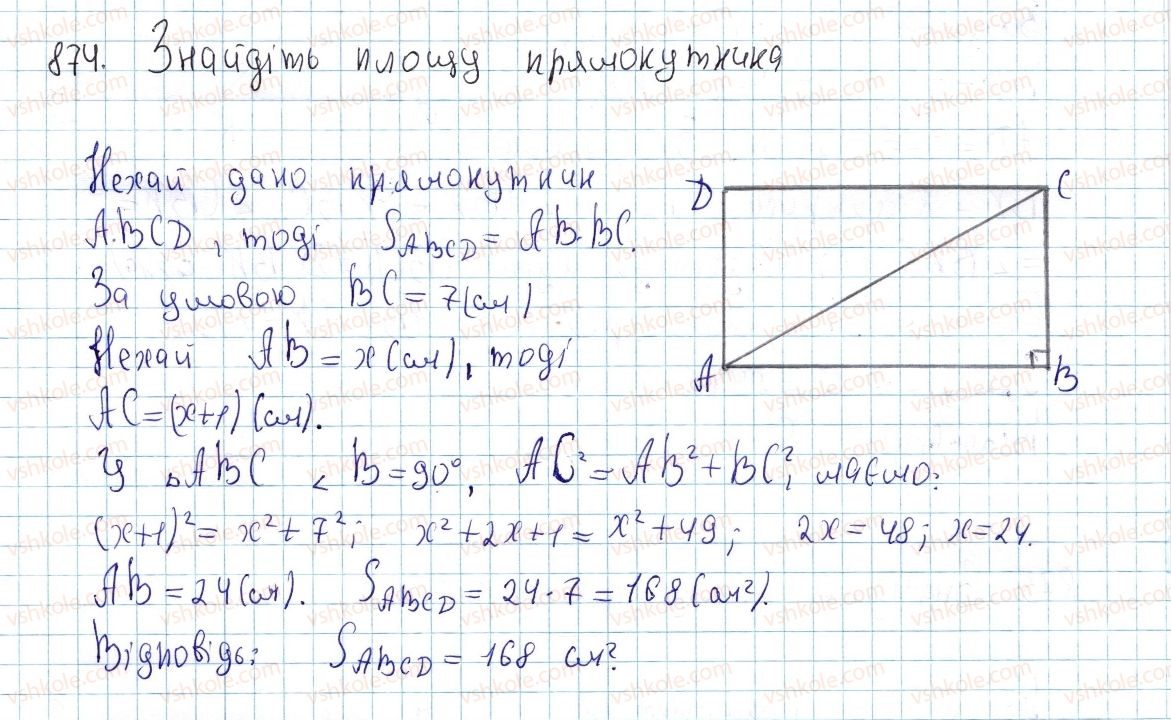 874. Знайдіть площу прямокутника
Нехай дано прямокутник
ABCD, тоді S_ABCD = AB·BC.
За умовою BC = 7 (см)
Нехай AB = x (см), тоді
AC = (x+1) (см).
У △ABC ∠B = 90°, AC² = AB² + BC², маємо:
(x+1)² = x² + 7²; x² + 2x + 1 = x² + 49; 2x = 48; x = 24.
AB = 24 (см). S_ABCD = 24·7 = 168 (см²).
Відповідь: S_ABCD = 168 см².
D C
A B
vshkole.com